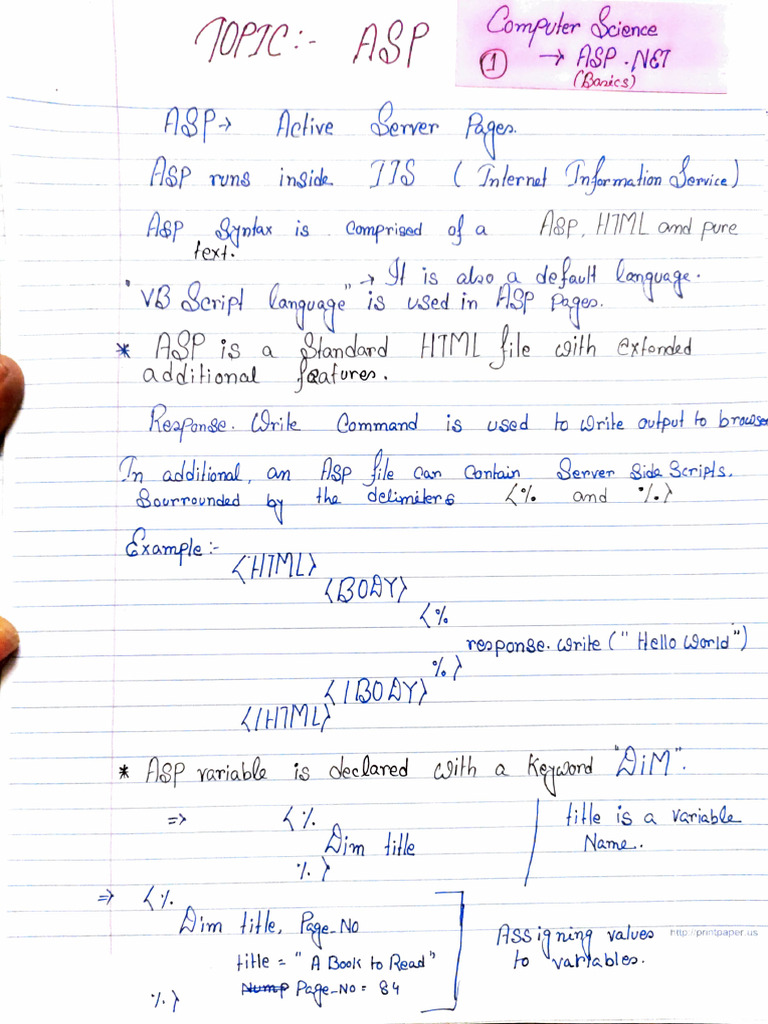 TOPIC:- ASP
Computer Science
1 → ASP.NET
(Basics)
ASP → Active Server Pages.
ASP runs inside IIS (Internet Information Service)
ASP Syntax is comprised of a ASP, HTML and pure
text.
→ It is also a default language.
"VB Script language" is used in ASP pages.
* ASP is a Standard HTML file with extended
additional features.
Response.Write Command is used to write output to browser
In additional, an ASP file can contain Server Side Scripts.
Sourrounded by the delimiters <% and %.>
Example:-
<HTML>
<BODY>
<%
response.write ("Hello World")
%>
</BODY>
</HTML>
* ASP variable is declared with a keyword "DiM".
⇒ <%
Dim title
%>
title is a variable
Name.
⇒ <%
Dim title, Page_No
title = "A Book to Read"
Page_No = 84
%>
Assigning values
to variables.
http://printpaper.us